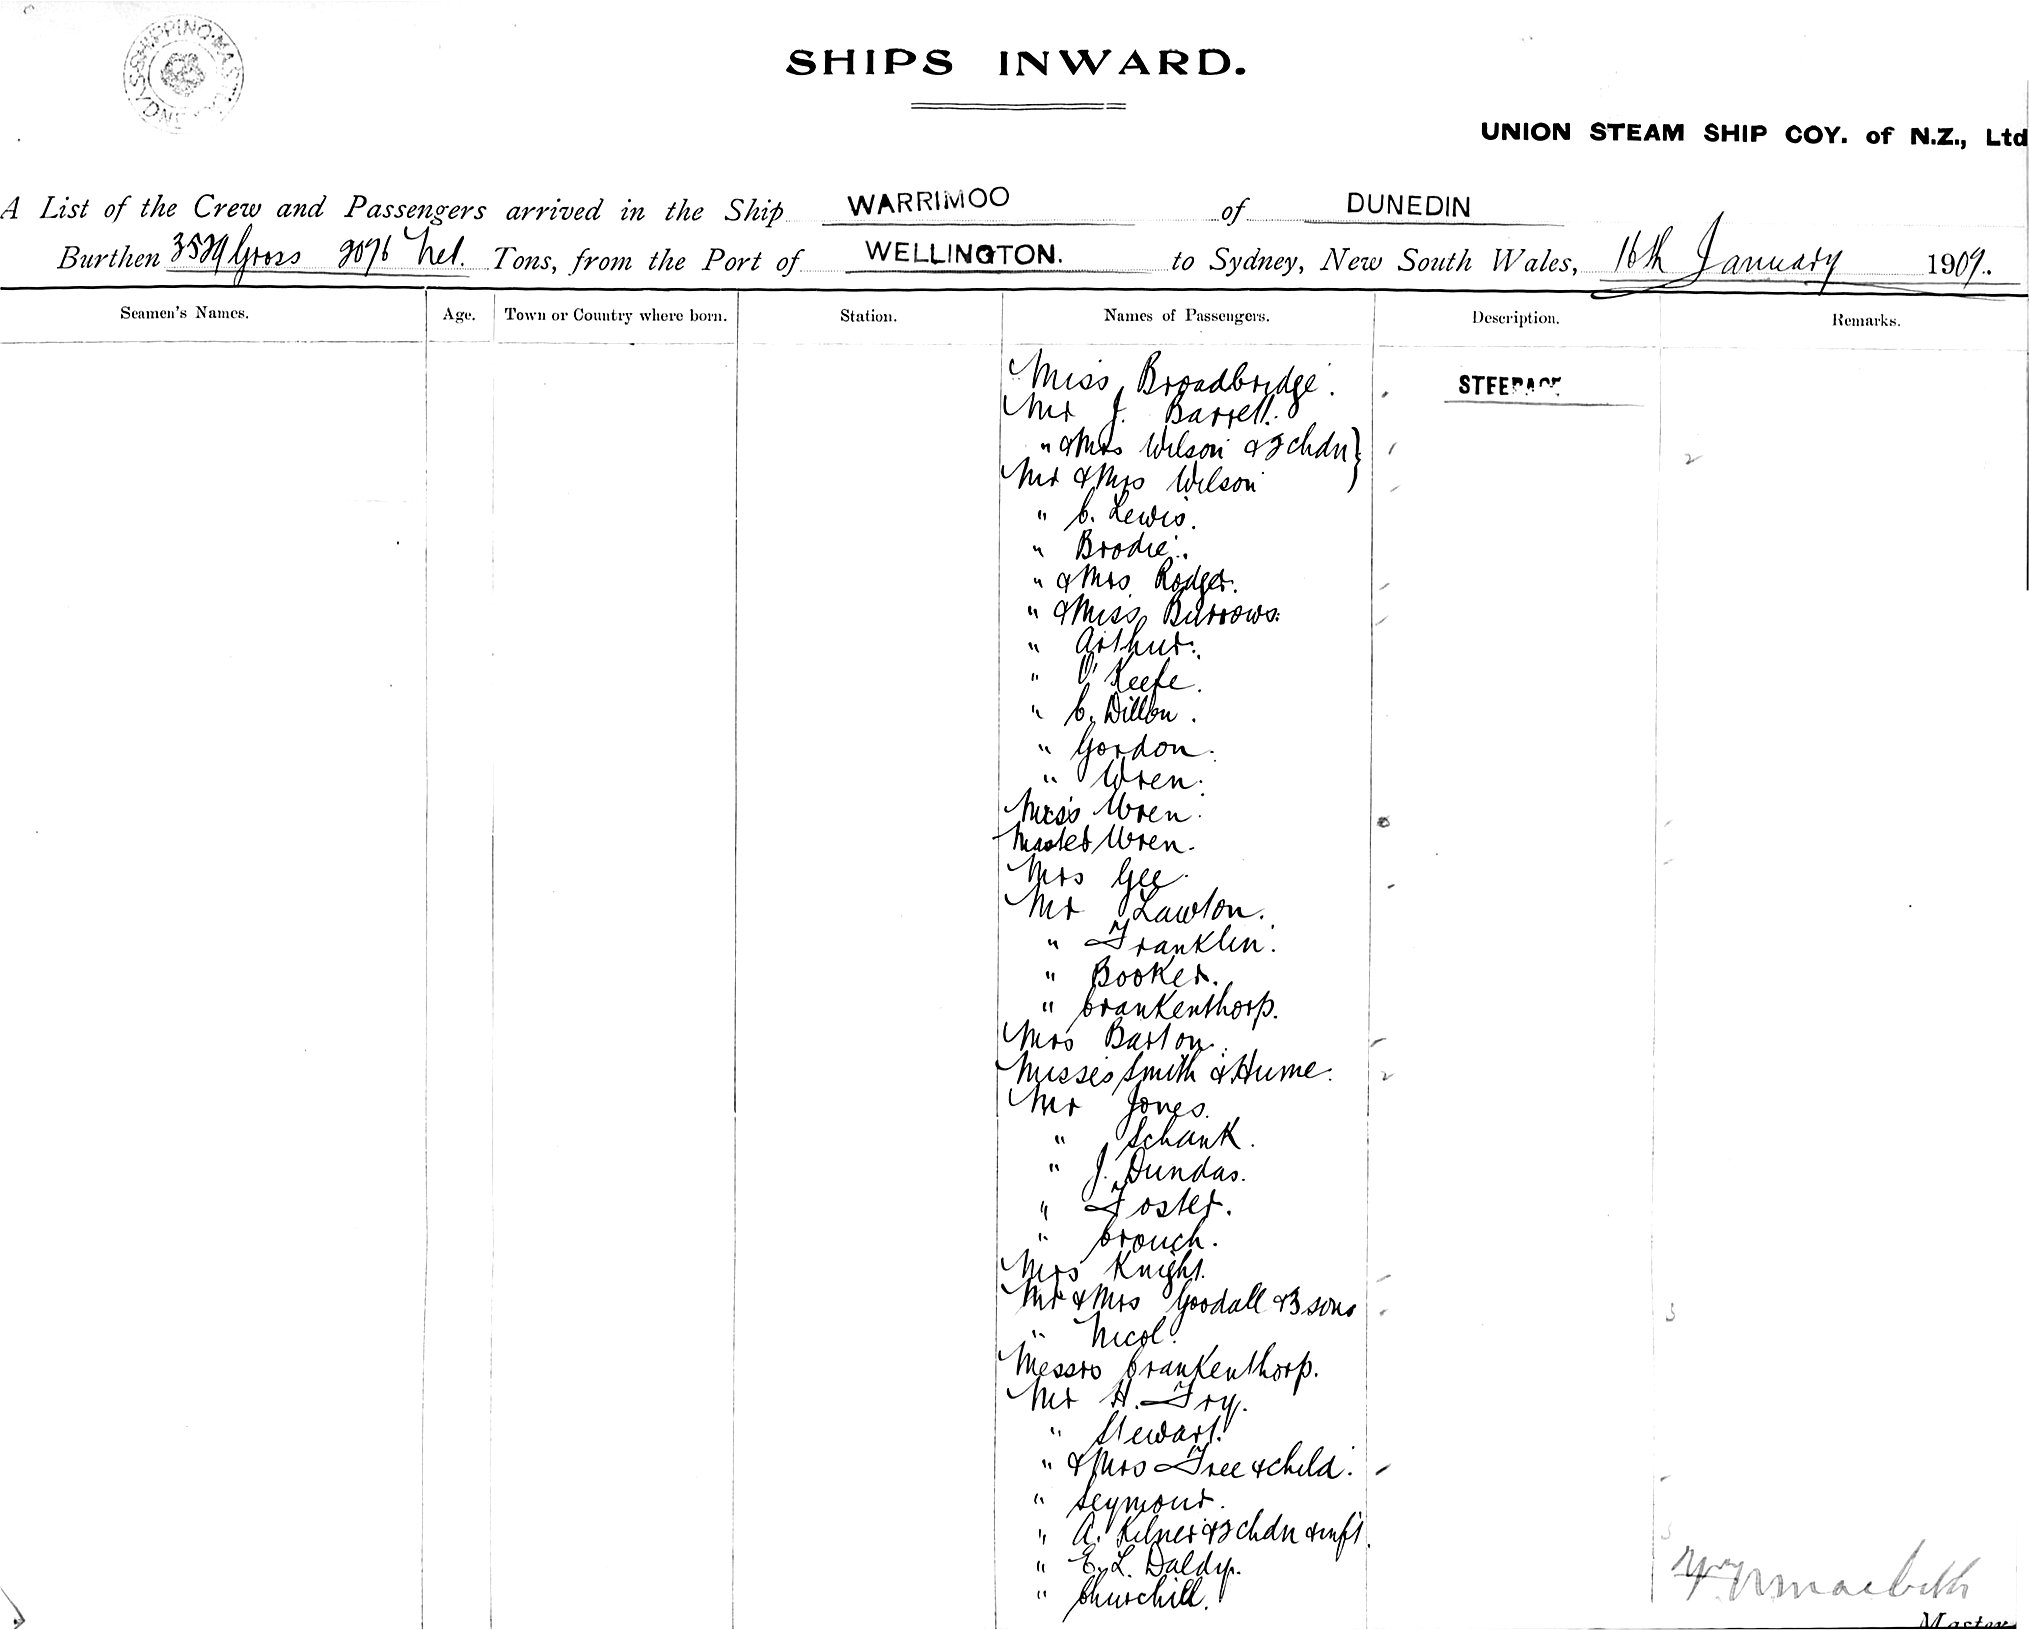 SHIPPING MASTER SYDNEY
SHIPS INWARD.
UNION STEAM SHIP COY. of N.Z., Ltd
A List of the Crew and Passengers arrived in the Ship WARRIMOO of DUNEDIN
Burthen 3529 Gross 2076 Net. Tons, from the Port of WELLINGTON. to Sydney, New South Wales, 16th January 1909.
Seamen's Names. Age. Town or Country where born. Station. Names of Passengers. Description. Remarks.
Miss Broadbridge. STEERAGE
Mr J. Barrell.
" & Mrs Wilson & 2 chdn } 2
Mr & Mrs Wilson
" C. Lewis.
" Brodie.
" & Mrs Rodger.
" & Miss Burrows.
" Arthur.
" O'Keefe.
" C. Dillon.
" Gordon.
" Wren.
Miss Wren.
Master Wren.
Mrs Gee.
Mr Lawton.
" Franklin.
" Booker.
" Crankenthorp.
Mrs Barton.
Misses Smith & Hume. 2
Mr Jones.
" Schank.
" J. Dundas.
" Foster.
" Crouch.
Mrs Knight.
Mr & Mrs Goodall & 3 sons 3
" Nicol.
Messrs Crankenthorp.
Mr H. Fry.
" Stewart.
" & Mrs Free & child.
" Seymour.
" A. Kilner & 2 chdn & inft. 3
" E. L. Daldy.
" Churchill.
Macbeth
Master